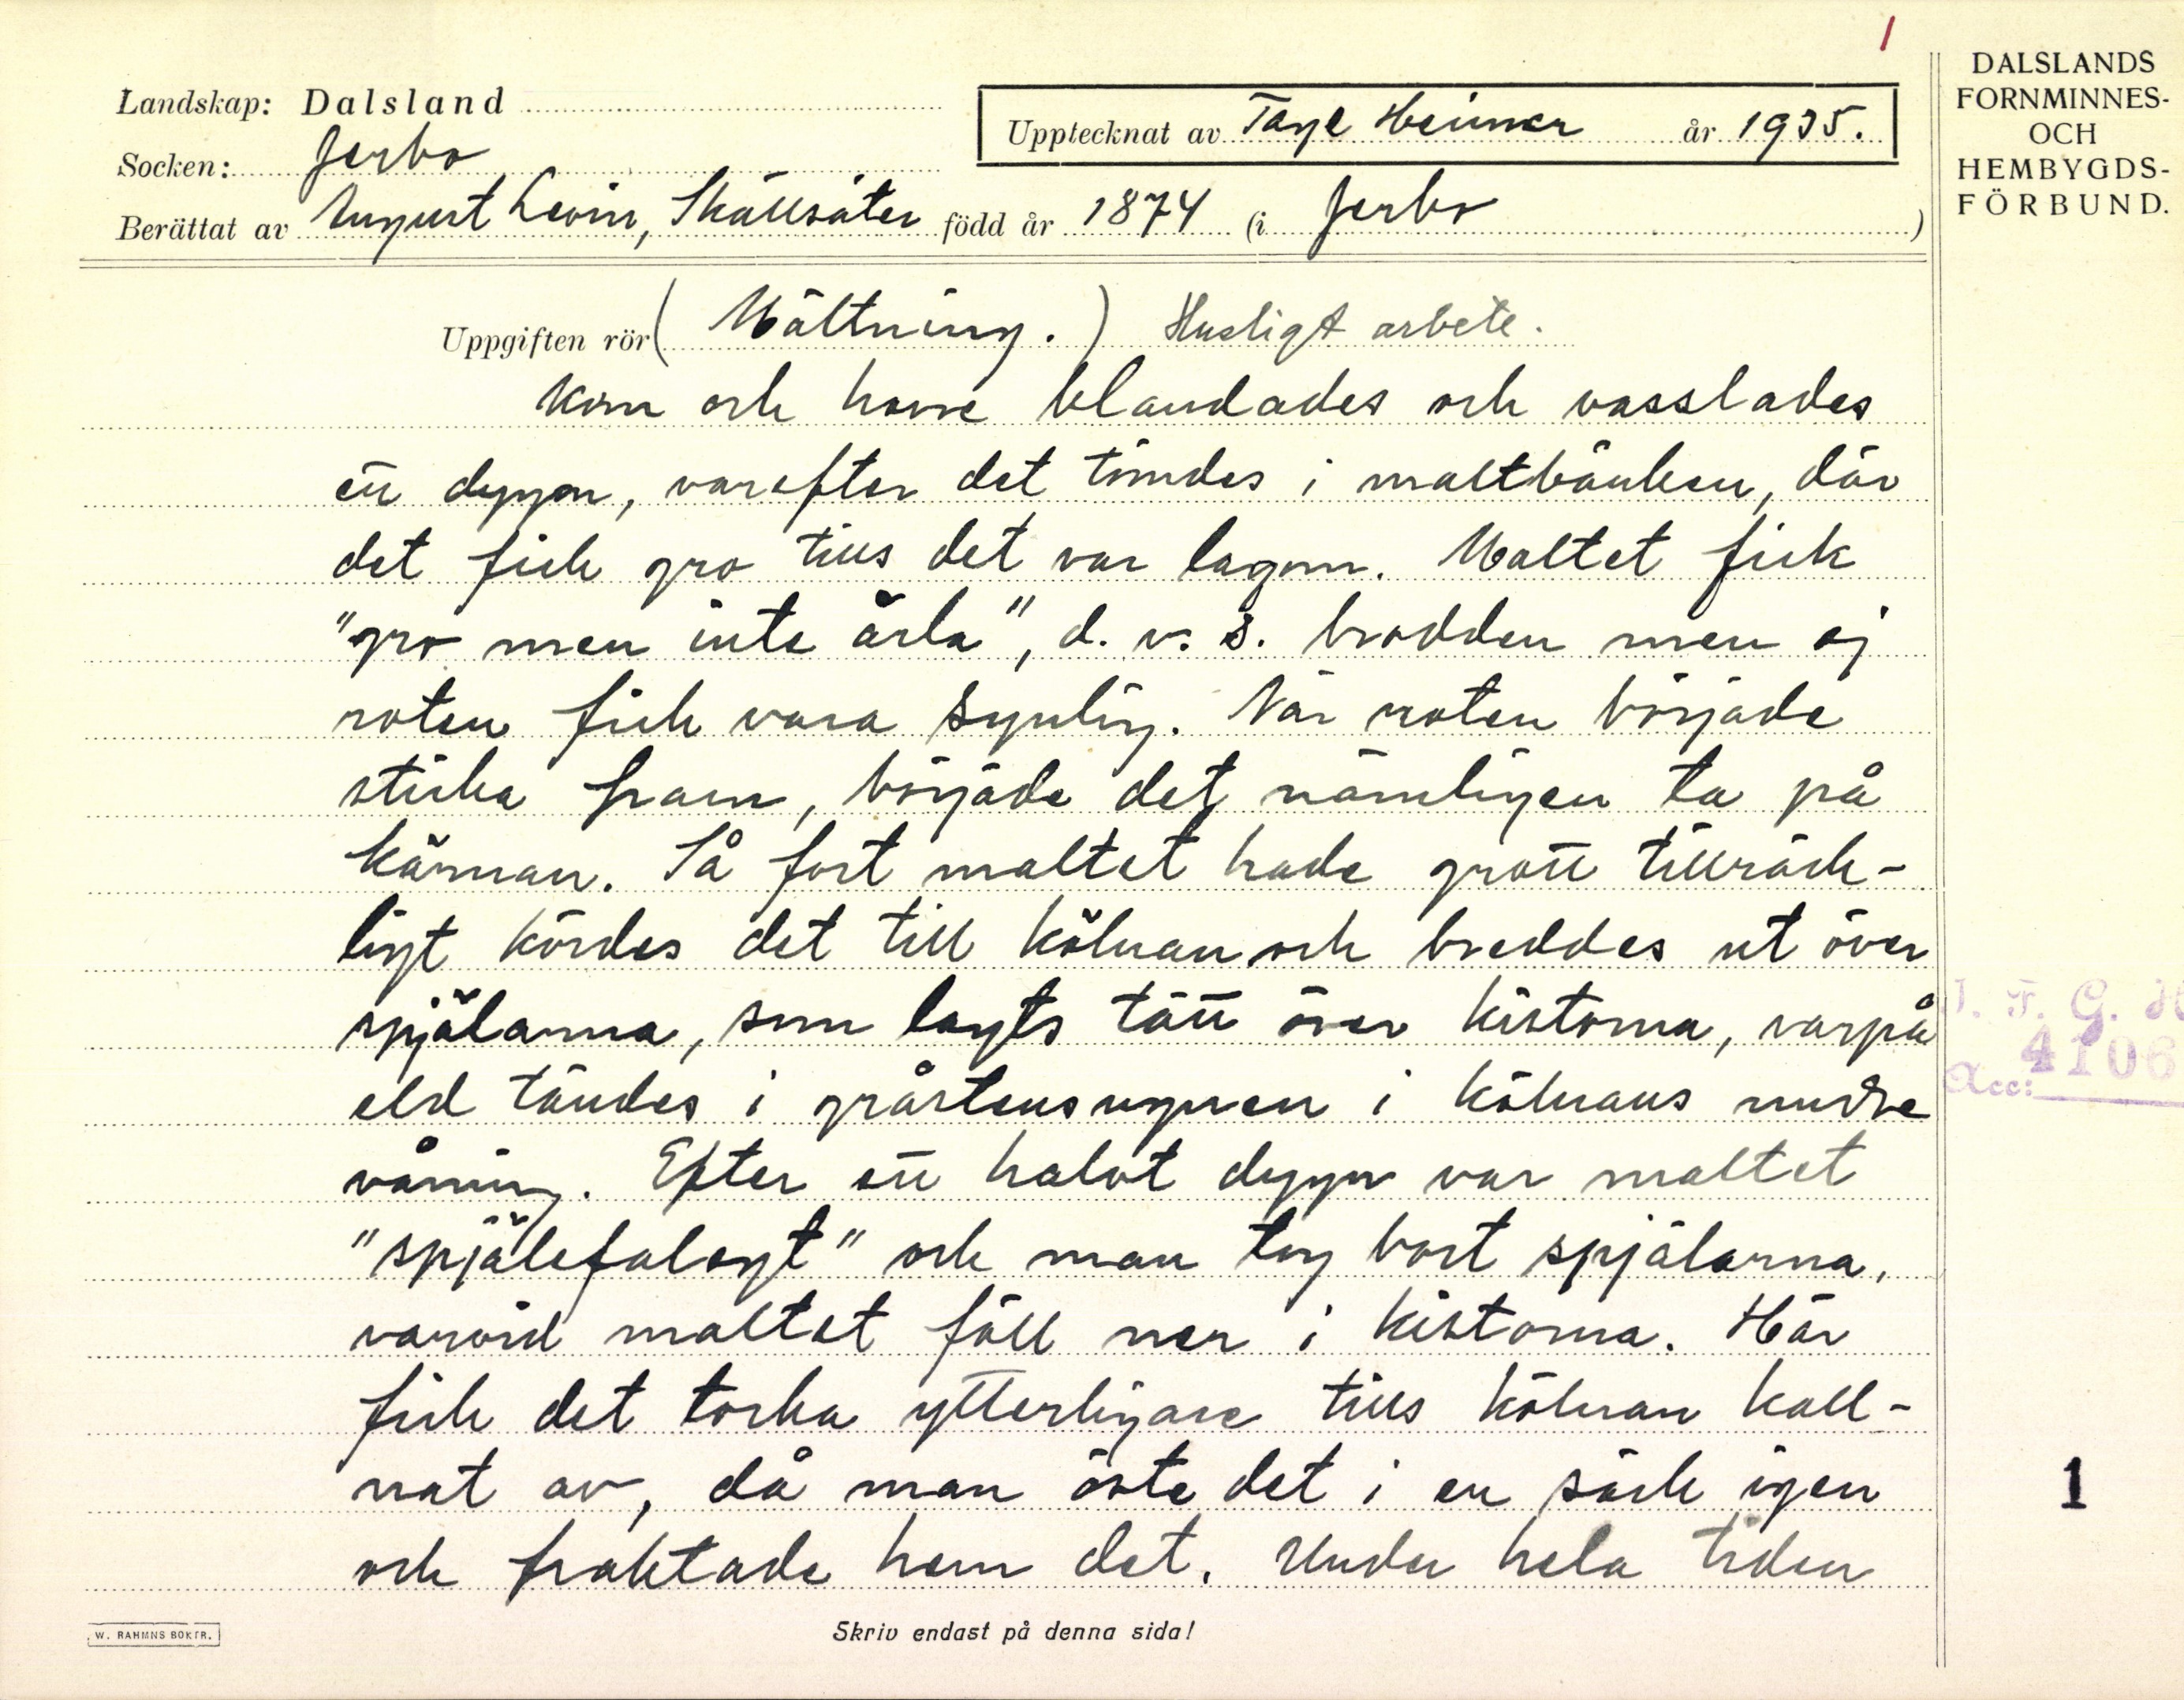 1
DALSLANDS
FORNMINNES-
OCH
HEMBYGDS-
FÖRBUND.
Landskap: Dalsland
Upptecknat av Tage Heimer år 1935.
Socken: Jerbo
Berättat av August Levin, Skällsäter född år 1874 (i Jerbo )
Uppgiften rör ( Mältning. ) Husligt arbete.
Korn och havre blandades och vasslades
ett dygn, varefter det tömdes i maltbänken, där
det fick gro tills det var lagom. Maltet fick
"gro men inte ärla", d. v. s. brodden men ej
roten fick vara synlig. När roten började
sticka fram, började det nämligen ta på
kärnan. Så fort maltet hade grott tillräck-
ligt kördes det till kölnan och breddes ut över
spjälarna, som lagts tätt över kistorna, varpå
eld tändes i gråstensugnen i kölnans nedre
våning. Efter ett halvt dygn var maltet
"spjälefalegt" och man tog bort spjälarna,
varvid maltet föll ner i kistorna. Här
fick det torka ytterligare tills kölnan kall-
nat av, då man öste det i en säck igen
och fraktade hem det. Under hela tiden
I. F. G. H
Acc: 4106
1
W. RAHMNS BOKTR.
Skriv endast på denna sida!